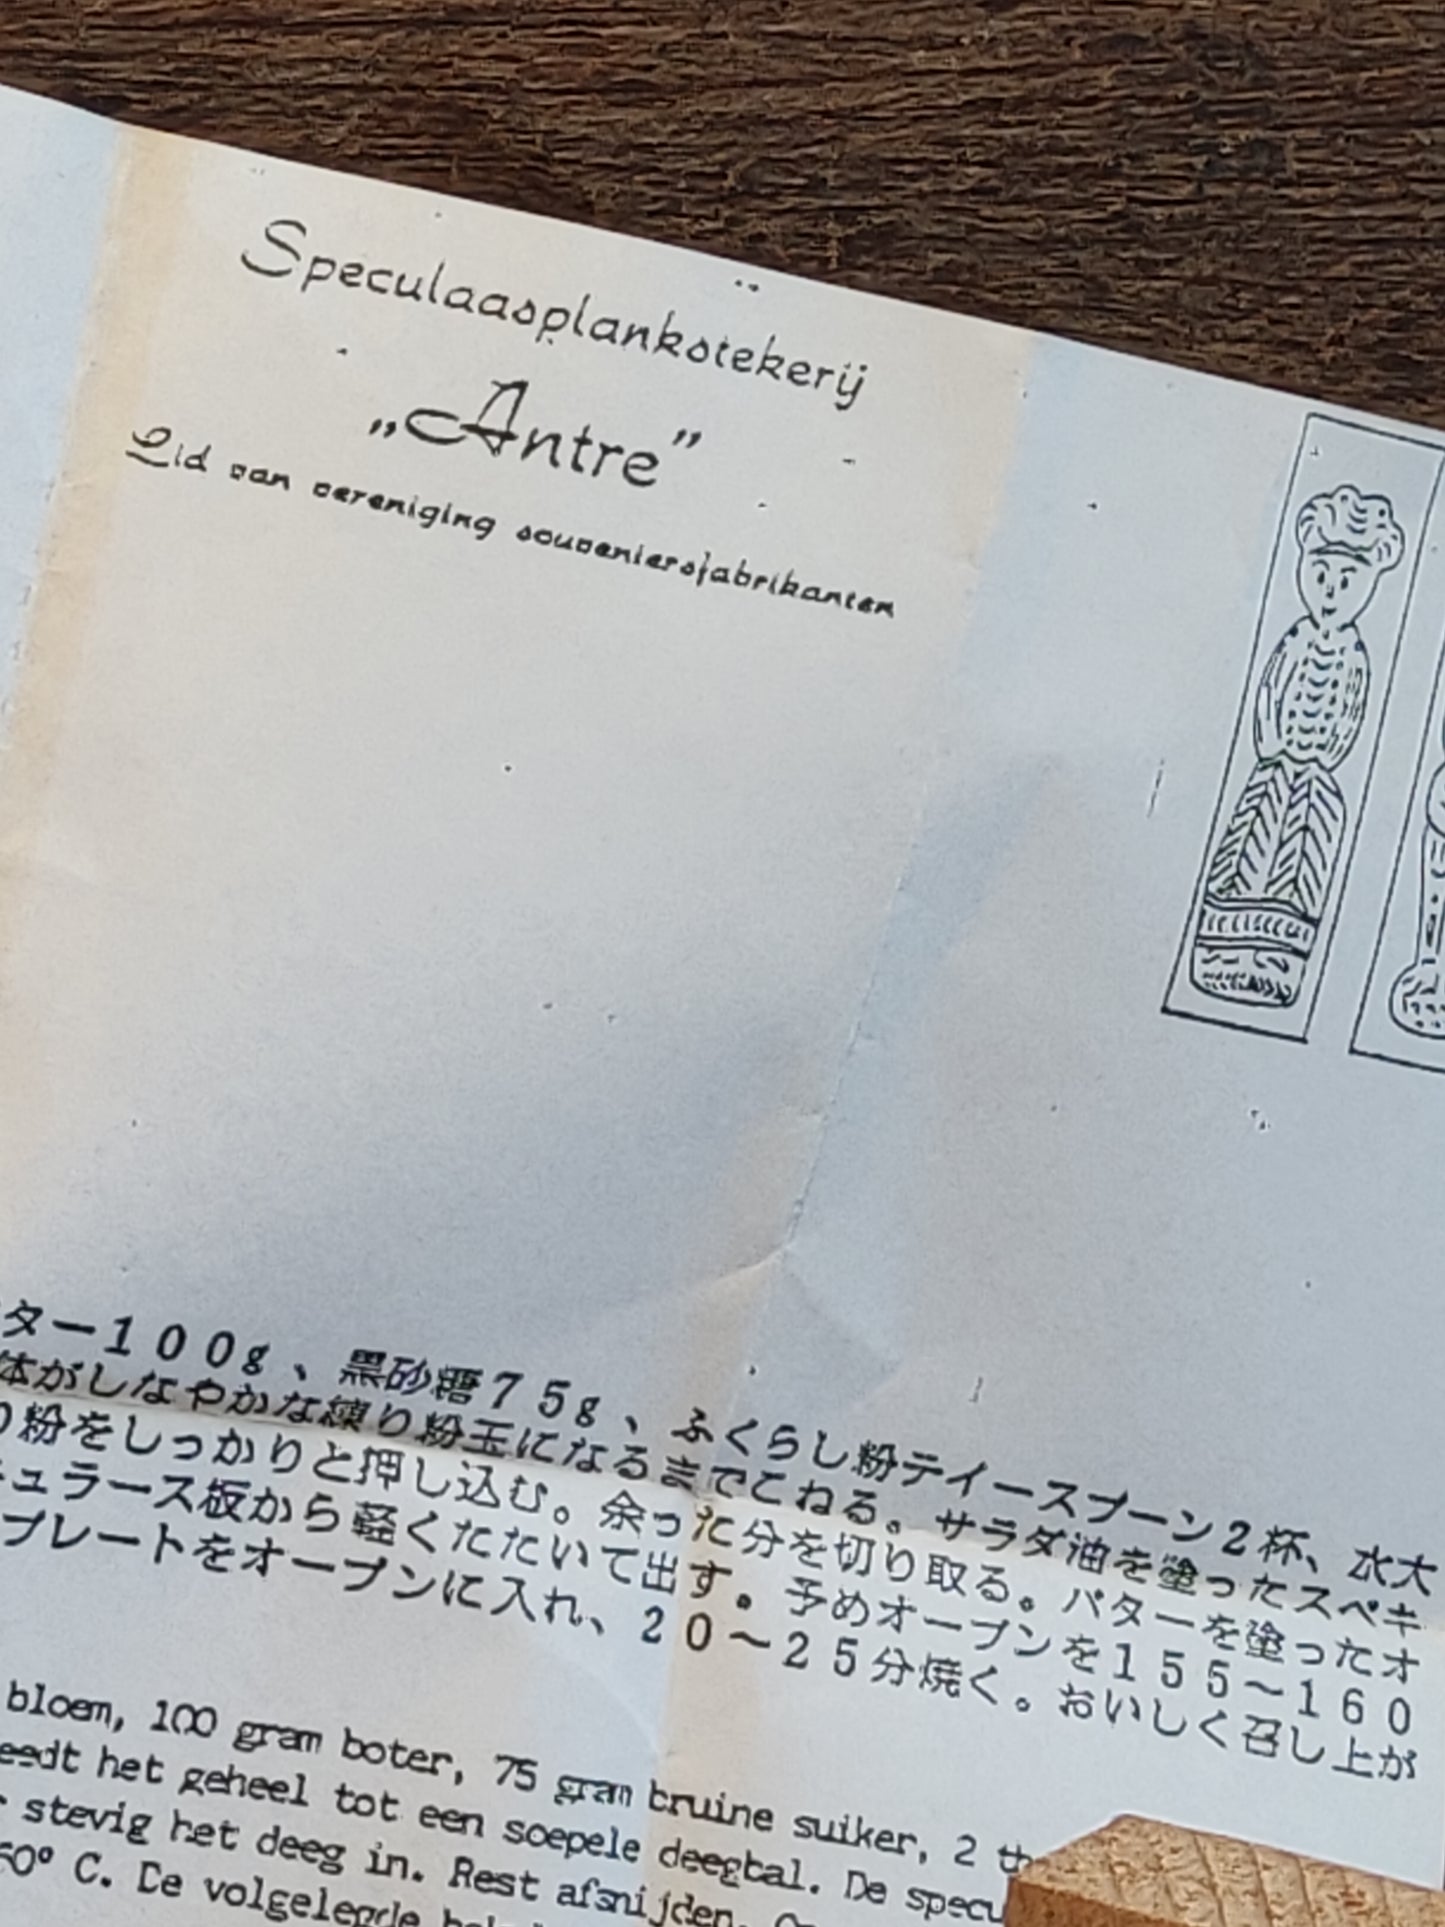 Speculaasplankstekerij
„Antre”
Lid van vereniging souveniersfabrikanten
ター１００g、黒砂糖７５g、ふくらし粉テイースプーン２杯、水大
体がしなやかな練り粉玉になるまでこねる。サラダ油を塗ったスペキ
り粉をしっかりと押し込む。余った分を切り取る。バターを塗ったオ
ュラース板から軽くたたいて出す。予めオーブンを１５５～１６０
プレートをオーブンに入れ、２０～２５分焼く。おいしく召し上が
bloem, 100 gram boter, 75 gram bruine suiker, 2 th
eedt het geheel tot een soepele deegbal. De specu
stevig het deeg in. Rest afsnijden.
60° C. De volgelegde